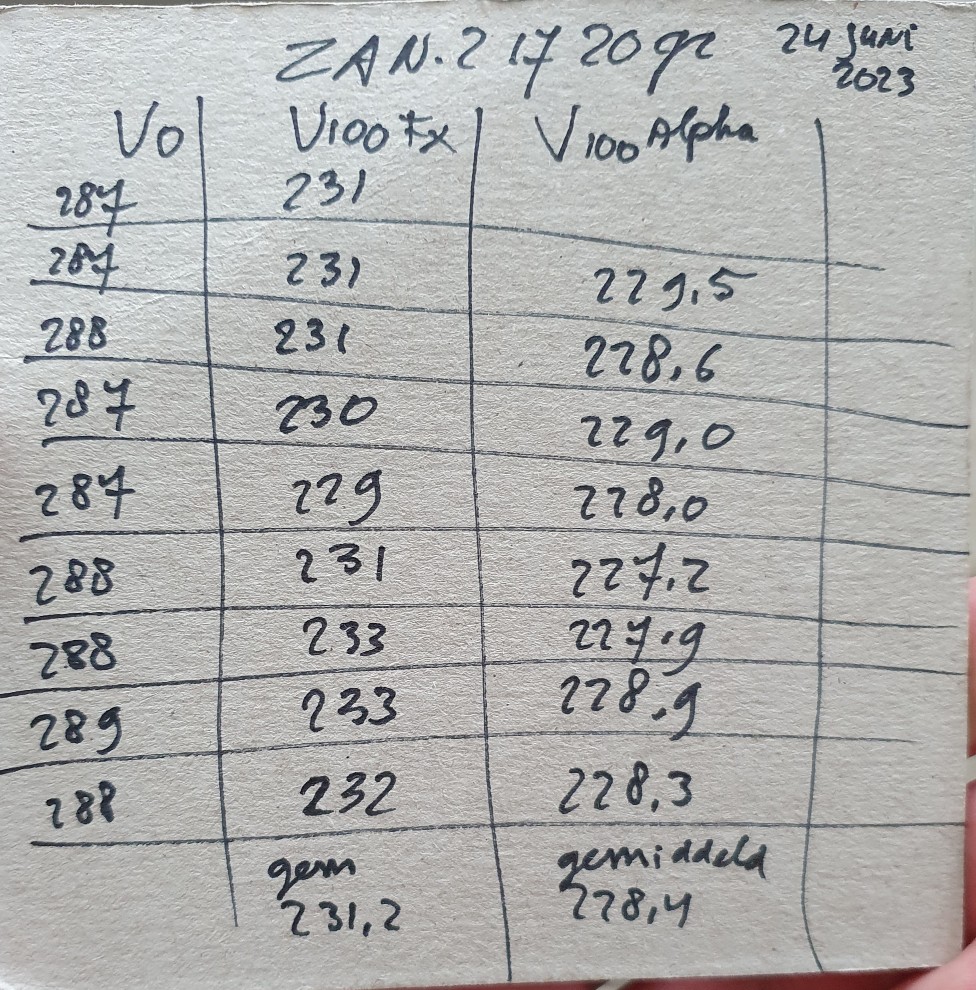 ZAN. 217 20gr 24 juni
2023
V0 V100 Fx V100 Alpha
287 231
287 231 229,5
288 231 228,6
287 230 229,0
287 229 228,0
288 231 227,2
288 233 227,9
289 233 228,9
288 232 228,3
gem gemiddeld
231,2 228,4